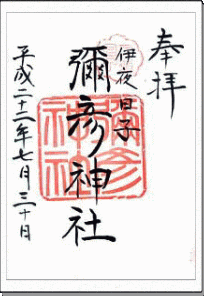 奉拝
伊夜日子
彌彦神社
平成二十二年七月三十日